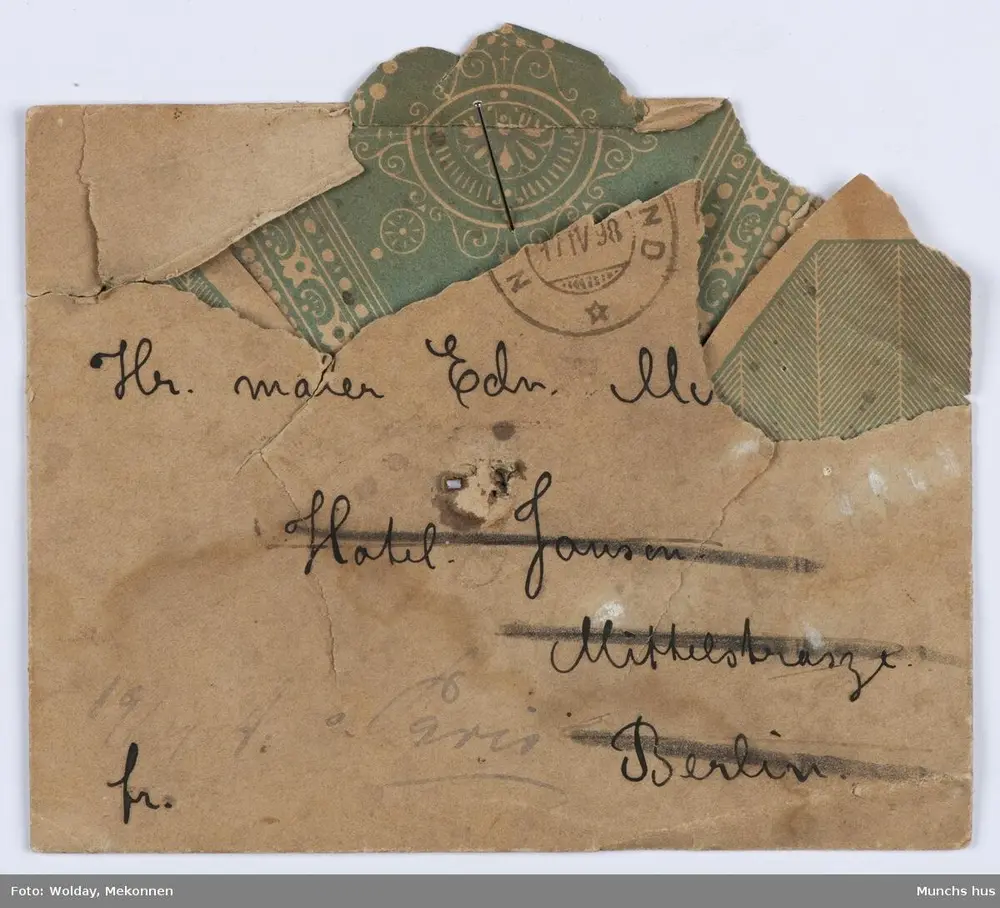 N 17 IV 98 ND
Hr. maler Edv. Mu
Hotel Janson.
Mittelstrasze.
Berlin.
19/4 f. a. Paris
fr.
Foto: Wolday, Mekonnen
Munchs hus